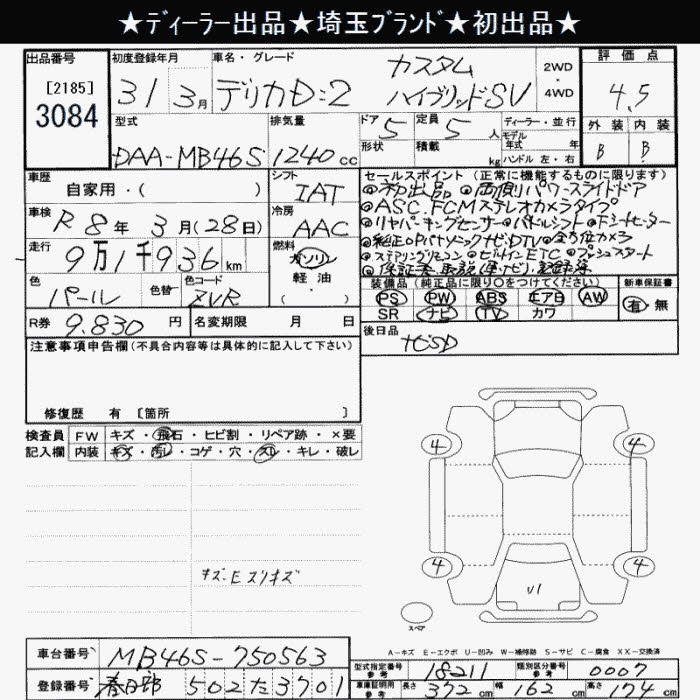 ★ディーラー出品★埼玉ブランド★初出品★
出品番号
[2185]
3084
初度登録年月
31年 3月
車名・グレード
デリカD:2
カスタム
ハイブリッドSV
2WD
・
4WD
評価点
4.5
外装 内装
B B
型式
DAA-MB46S
排気量
1240cc
ドア
5
定員
5人
形状
積載
kg
ディーラー・並行
モデル
年式 年
ハンドル 左・右
車歴
自家用・( )
シフト
IAT
車検
R8年 3月(28日)
冷房
AAC
走行
9万1千936km
燃料
ガソリン
軽・油
( )
色
パール
色替
色コード
ZVR
R券
9.830円
名変期限 月 日
セールスポイント(正常に機能するものに限ります)
◎初出品 ◎両側パワースライドドア
◎ASC.FCMステレオカメラタイプ
◎リヤパーキングセンサー ◎パドルシフト ◎Fシートヒーター
◎純正OPパナソニックナビDTV ◎全方位カメラ
◎ステアリングリモコン ◎ビルトインETC ◎プッシュスタート
◎保証書・取説(車・ナビ)・記録簿
装備品(純正品に限り○をつけてください)
PS PW ABS エアB AW
SR ナビ TV カワ
新車保証書
有・無
後日品
ナビSD
注意事項申告欄(不具合内容等は具体的に記入して下さい)
修復歴 有 [箇所 ]
検査員
記入欄
FW キズ・飛石・ヒビ割・リペア跡・×要
内装 キズ・汚レ・コゲ・穴・スレ・キレ・破レ
キズ・Eスリキズ
4 4
4 4
U1
スペア
A-キズ E-エクボ U-凹み W-補修跡 S-サビ C-腐食 XX-交換済
車台番号
MB46S-750563
登録番号
春日部 502た3701
型式指定番号
参考
18211
類別区分番号
参考
0007
車庫証明用
参考
長さ 372cm
幅 162cm
高さ 174cm